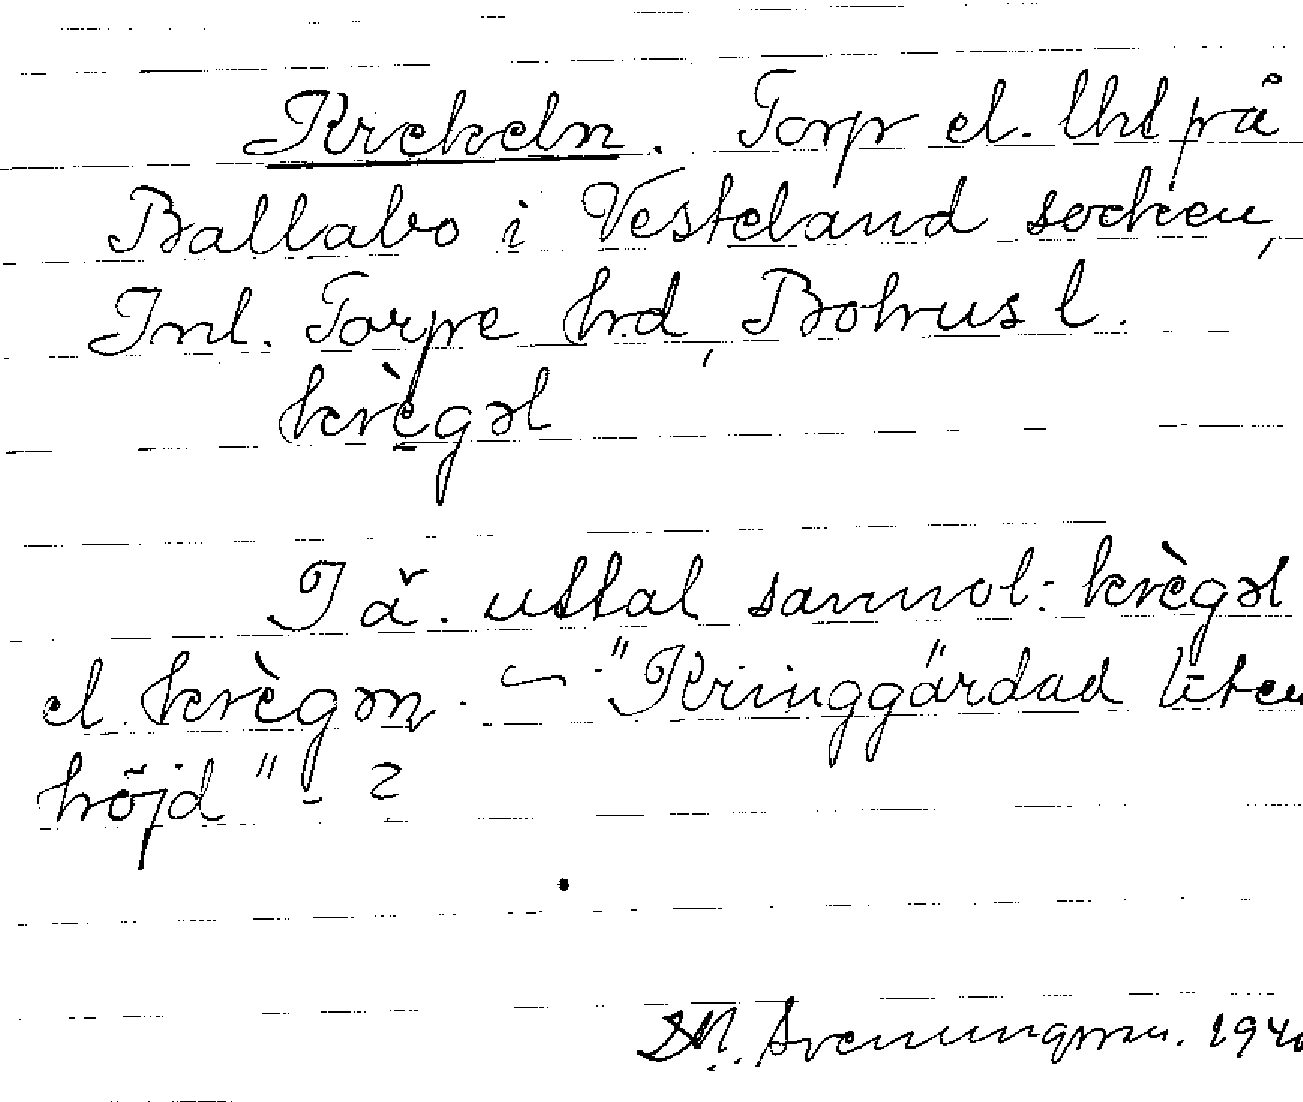 Krekeln. Torp el. lht på
Ballabo i Vesteland socken,
Inl. Torpe hrd, Bohusl.
krègəl
I ä. uttal sannol: krègəl
el. krègən. – "Kringgärdad liten
höjd" - ?
1940